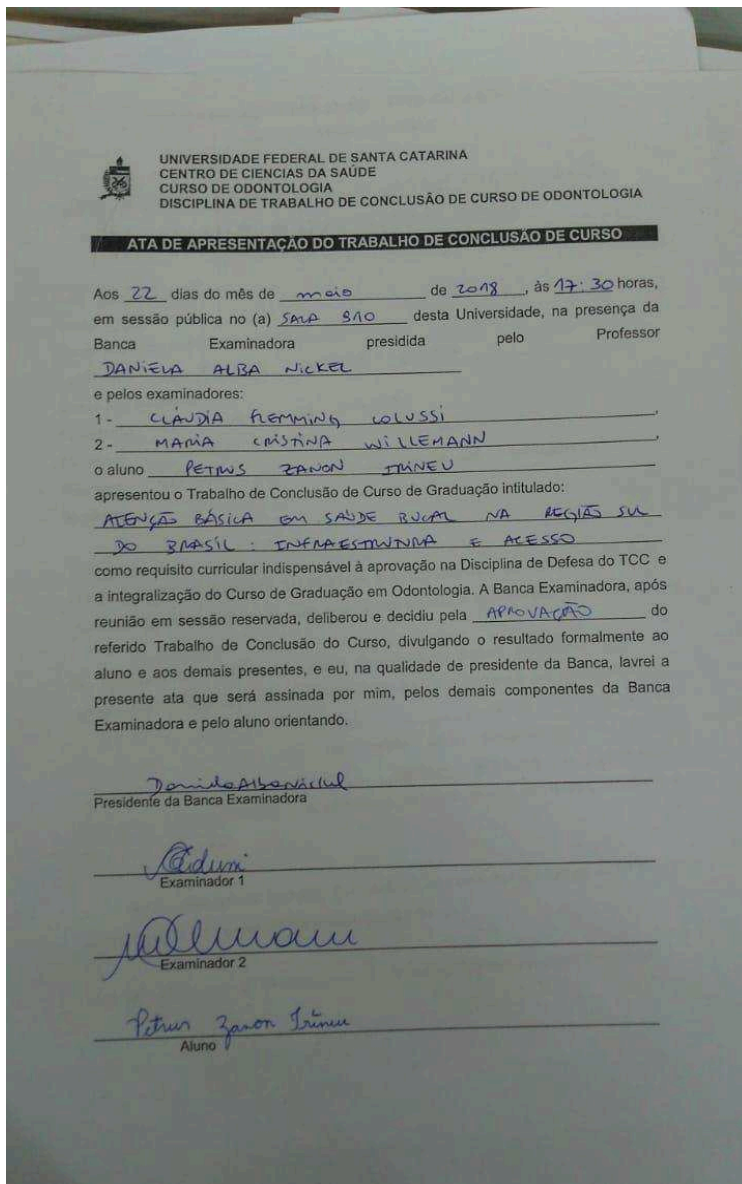 UNIVERSIDADE FEDERAL DE SANTA CATARINA
CENTRO DE CIENCIAS DA SAÚDE
CURSO DE ODONTOLOGIA
DISCIPLINA DE TRABALHO DE CONCLUSÃO DE CURSO DE ODONTOLOGIA
ATA DE APRESENTAÇÃO DO TRABALHO DE CONCLUSÃO DE CURSO
Aos 22 dias do mês de maio de 2018, às 17:30 horas,
em sessão pública no (a) SALA desta Universidade, na presença da
Banca Examinadora presidida pelo Professor
DANIELA ALBA NICKEL
e pelos examinadores:
1 - CLÁUDIA FLEMMING COLUSSI,
2 - MARIA CRISTINA WILLEMANN,
o aluno PETRUS ZANON IRINEU
apresentou o Trabalho de Conclusão de Curso de Graduação intitulado:
ATENÇÃO BÁSICA EM SAÚDE BUCAL NA REGIÃO SUL
DO BRASIL: INFRAESTRUTURA E ACESSO
como requisito curricular indispensável à aprovação na Disciplina de Defesa do TCC e
a integralização do Curso de Graduação em Odontologia. A Banca Examinadora, após
reunião em sessão reservada, deliberou e decidiu pela APROVAÇÃO do
referido Trabalho de Conclusão do Curso, divulgando o resultado formalmente ao
aluno e aos demais presentes, e eu, na qualidade de presidente da Banca, lavrei a
presente ata que será assinada por mim, pelos demais componentes da Banca
Examinadora e pelo aluno orientando.
Presidente da Banca Examinadora
Examinador 1
Examinador 2
Petrus Zanon Irineu
Aluno